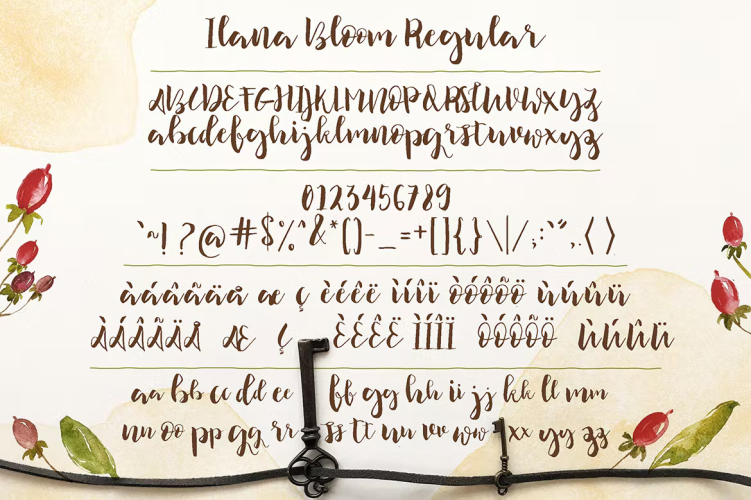 Ilana Bloom Regular
ABCDEFGHIJKLMNOPQRSTUVWXYZ
abcdefghijklmnopqrstuvwxyz
0123456789
`~!?@#$%&*()-_=+[]{}\|/;:'",.<>
àáâãäå æ ç èéêë ìíîï òóôõö ùúûü
ÀÁÂÃÄÅ Æ Ç ÈÉÊË ÌÍÎÏ ÒÓÔÕÖ ÙÚÛÜ
aa bb cc dd ee ff gg hh ii jj kk ll mm
nn oo pp qq rr ss tt uu vv ww xx yy zz